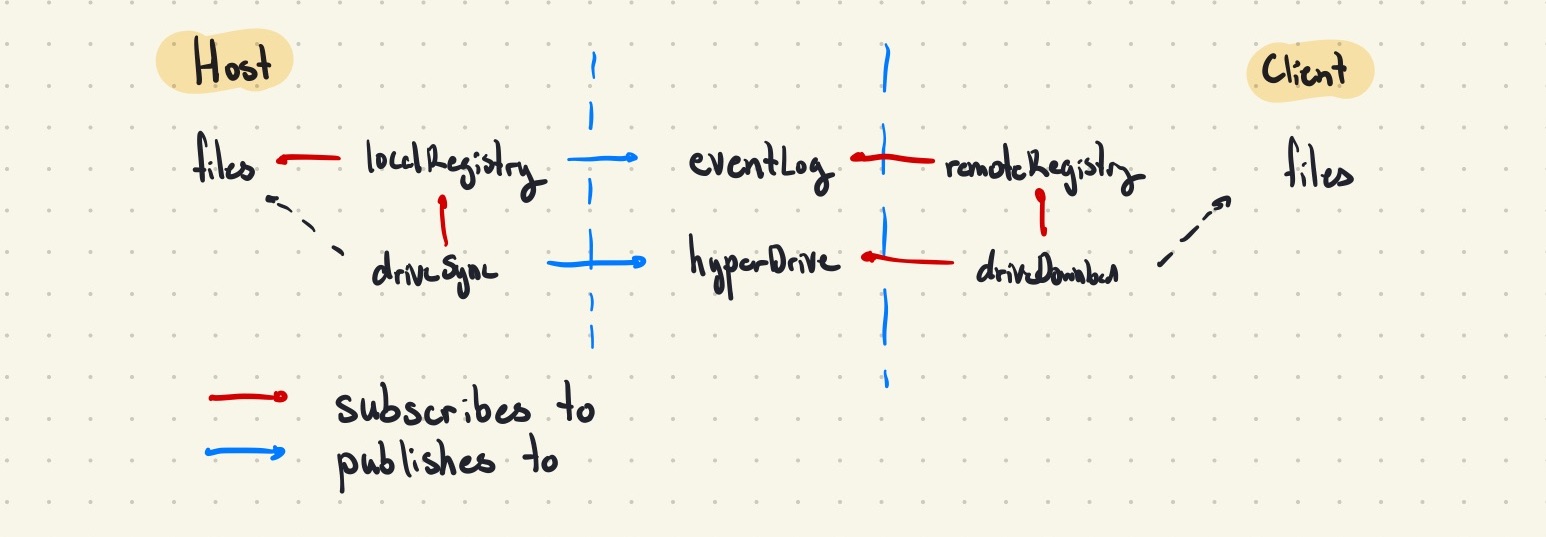 Host
Client
files localRegistry eventLog remoteRegistry files
driveSync hyperDrive
subscribes to
publishes to